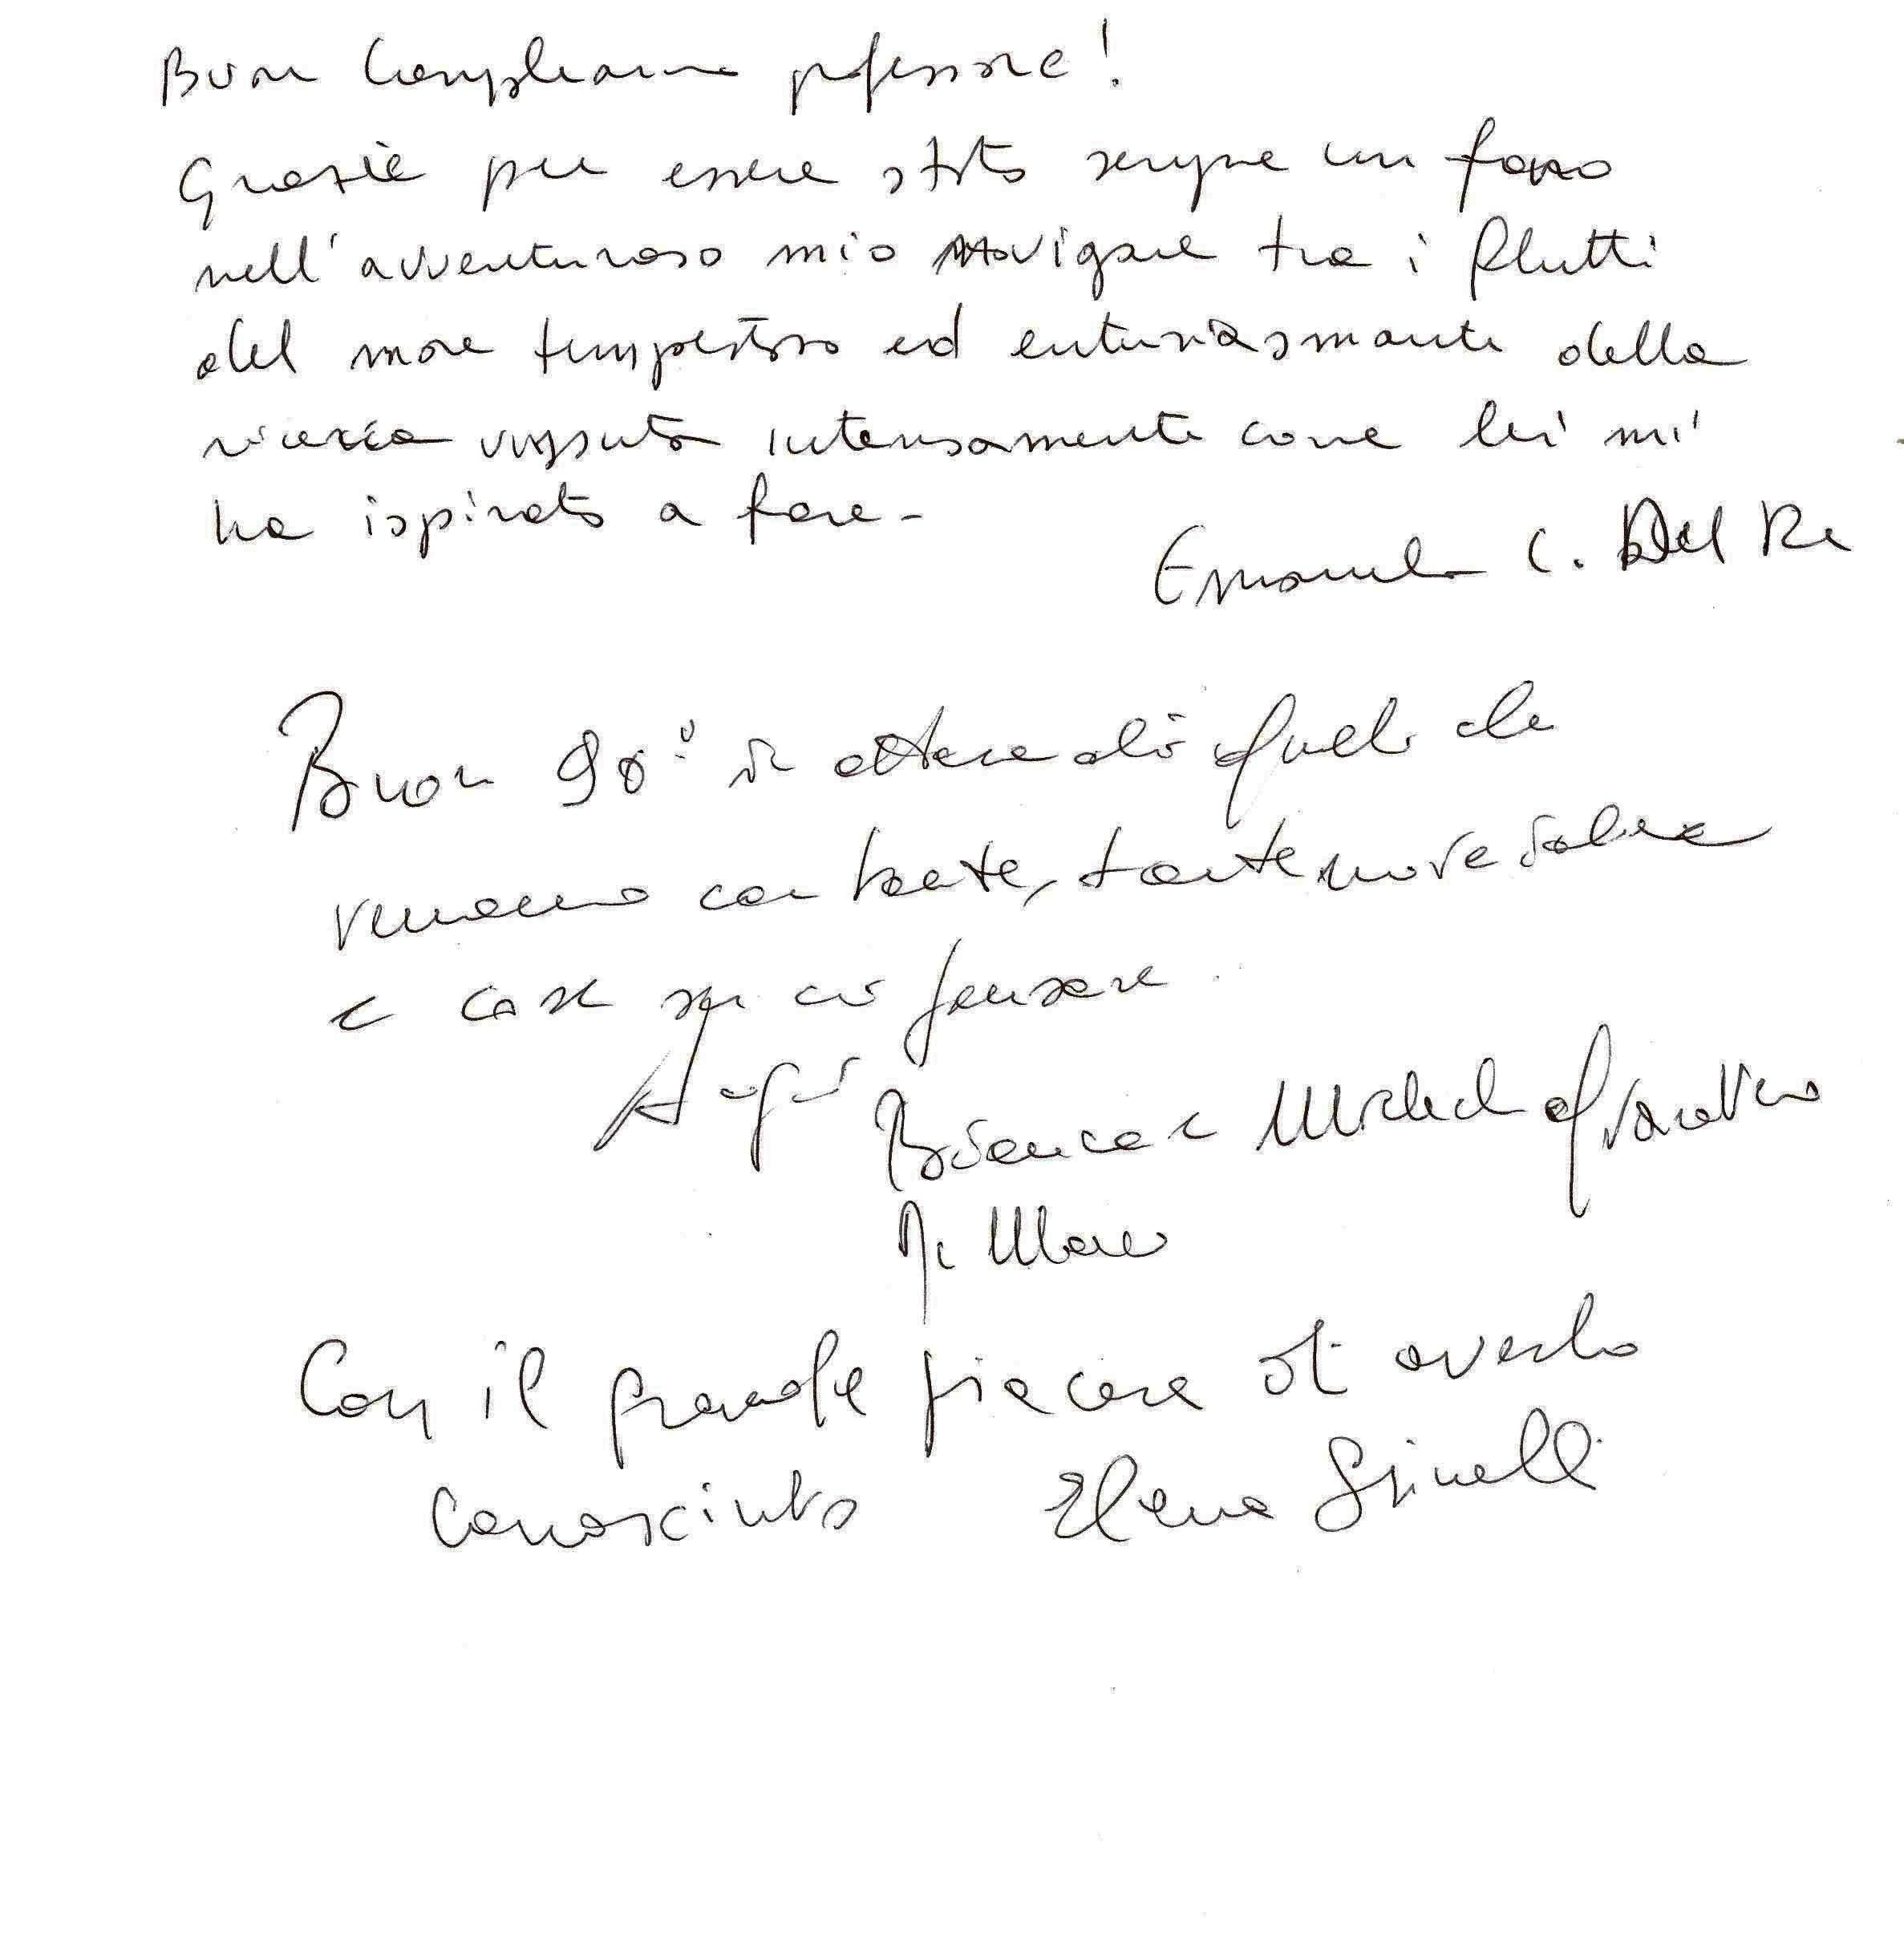 Buon Compleanno professore!
Grazie per essere stato sempre un faro
nell'avventuroso mio navigare tra i flutti
del mare tempestoso ed entusiasmante della
ricerca vissuta intensamente come lei mi
ha ispirato a fare -
Emanuela C. Del Re
Buon 90° in attesa di quelli che
verranno con tante, tante nuove
e cose su cui pensare.
Auguri
Bianca e
Di Marco
Con il grande piacere di averlo
conosciuto Elena Spinelli